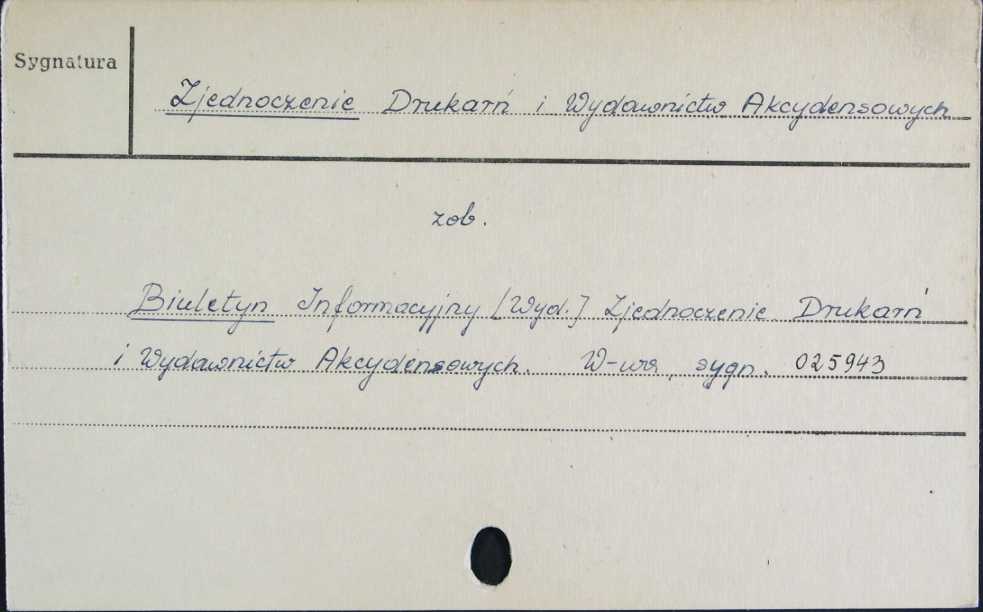 Sygnatura
Zjednoczenie Drukarń i Wydawnictw Akcydensowych
zob.
Biuletyn Informacyjny [Wyd.] Zjednoczenie Drukarń
i Wydawnictw Akcydensowych. W-wa, sygn. 025943